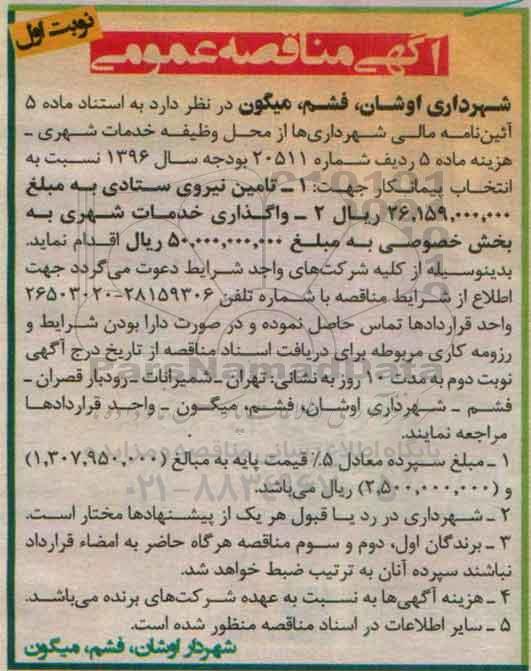 نوبت اول
آگهی مناقصه عمومی
شهرداری اوشان، فشم، میگون در نظر دارد به استناد ماده ۵
آئین‌نامه مالی شهرداری‌ها از محل وظیفه خدمات شهری ـ
هزینه ماده ۵ ردیف شماره ۲۰۵۱۱ بودجه سال ۱۳۹۶ نسبت به
انتخاب پیمانکار جهت: ۱ ـ تامین نیروی ستادی به مبلغ
۲۶,۱۵۹,۰۰۰,۰۰۰ ریال ۲ ـ واگذاری خدمات شهری به
بخش خصوصی به مبلغ ۵۰,۰۰۰,۰۰۰,۰۰۰ ریال اقدام نماید.
بدینوسیله از کلیه شرکت‌های واجد شرایط دعوت می‌گردد جهت
اطلاع از شرایط مناقصه با شماره تلفن ۲۸۱۵۹۳۰۶-۲۶۵۰۳۰۲۰
واحد قراردادها تماس حاصل نموده و در صورت دارا بودن شرایط و
رزومه کاری مربوطه برای دریافت اسناد مناقصه از تاریخ درج آگهی
نوبت دوم به مدت ۱۰ روز به نشانی: تهران ـ شمیرانات ـ رودبار قصران ـ
فشم ـ شهرداری اوشان، فشم، میگون ـ واحد قراردادها
مراجعه نمایند.
۱ ـ مبلغ سپرده معادل ۵٪ قیمت پایه به مبالغ (۱,۳۰۷,۹۵۰,۰۰۰)
و (۲,۵۰۰,۰۰۰,۰۰۰) ریال می‌باشد.
۲ ـ شهرداری در رد یا قبول هر یک از پیشنهادها مختار است.
۳ ـ برندگان اول، دوم و سوم مناقصه هرگاه حاضر به امضاء قرارداد
نباشند سپرده آنان به ترتیب ضبط خواهد شد.
۴ ـ هزینه آگهی‌ها به نسبت به عهده شرکت‌های برنده می‌باشد.
۵ ـ سایر اطلاعات در اسناد مناقصه منظور شده است.
شهردار اوشان، فشم، میگون
ParsNamadData